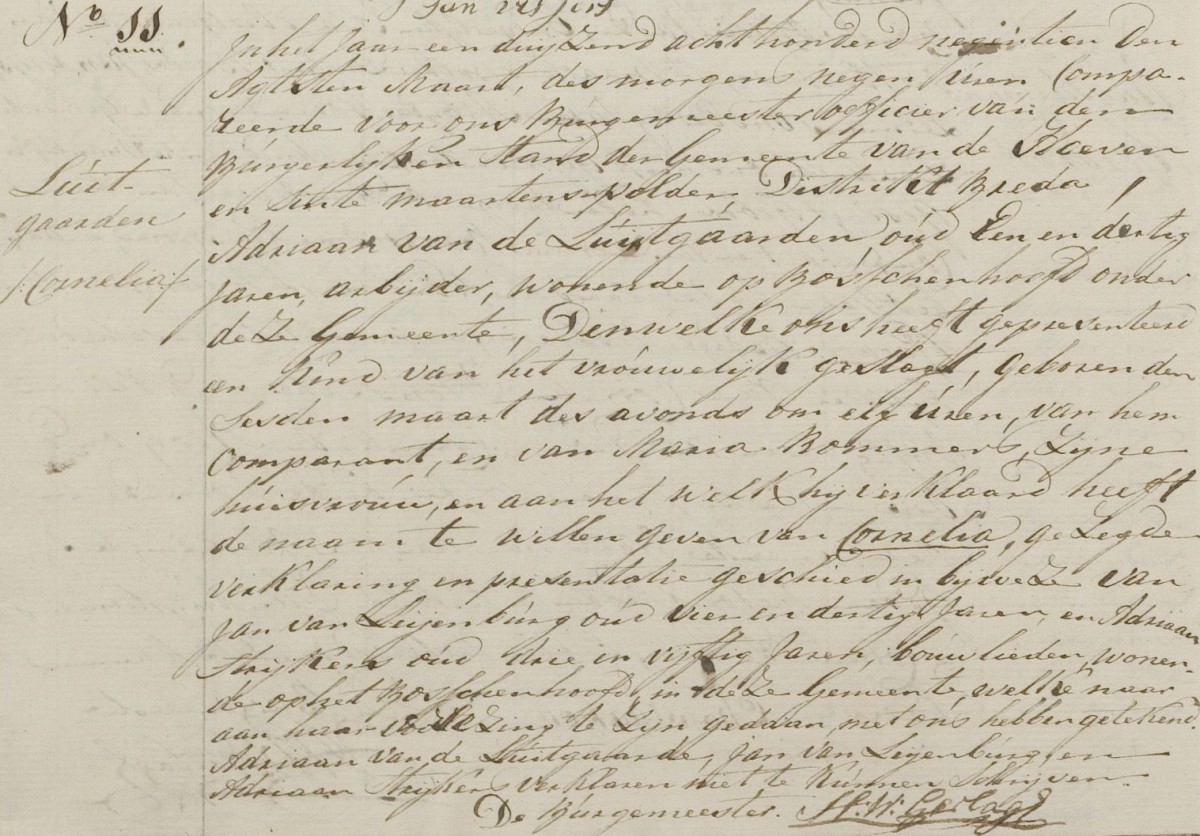 No 11.
In het Jaar een duijzend acht honderd negentien Den
Agtsten Maart, des morgens negen úúren Compa-
reerde voor ons Burgemeester officier van den
Búrgerlijken Stand der Gemeente van de Hoeven
en Sinte maartenspolder, Distrikt Breda,
Luit-
gaarden
Cornelia
Adriaan van de Lúijtgaarden, oúd Een en dertig
Jaren, arbijder, wonende op Bosschenhooft onder
deze Gemeente, Denwelke ons heeft gepresenteerd
een Kind van het vroúwelijk geslagt, geboren den
Sesden maart des avonds om elf úren, van hem
Comparant, en van Maria Rommers, Zijne
húisvroúw, en aan het welk hij verklaard heeft
de naam te willen geven van Cornelia, gezegde
verklaring en presentatie geschied in bijweze van
Jan van Leijenbúrg oúd vier en dertig Jaren, en Adriaan
Strijkers oúd drie en vijftig Jaren, boúwlieden, wonen-
de op het Bosschenhoofd, in deze Gemeente, welke naar
aan haar voorlezing te zijn gedaan, met ons hebben getekend.
Adriaan van de Lúitgaarde, Jan van Leijenbúrg, en
Adriaan Strijkers verklaren niet te kúnnen Schrijven
De Búrgemeester. Gerlag